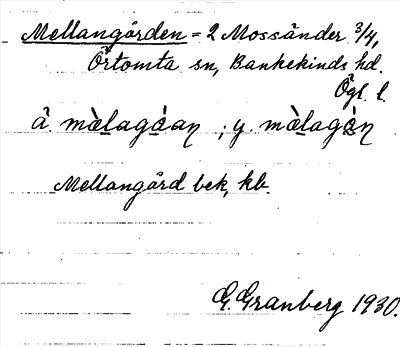 Mellangården = 2 Mossänder 3/4,
Örtomta sn, Bankekinds hd.
Ögl. l.
å. mälagå̀an ; y. mälagɔ̀n
Mellangård bek, kb
G. Granberg 1930.